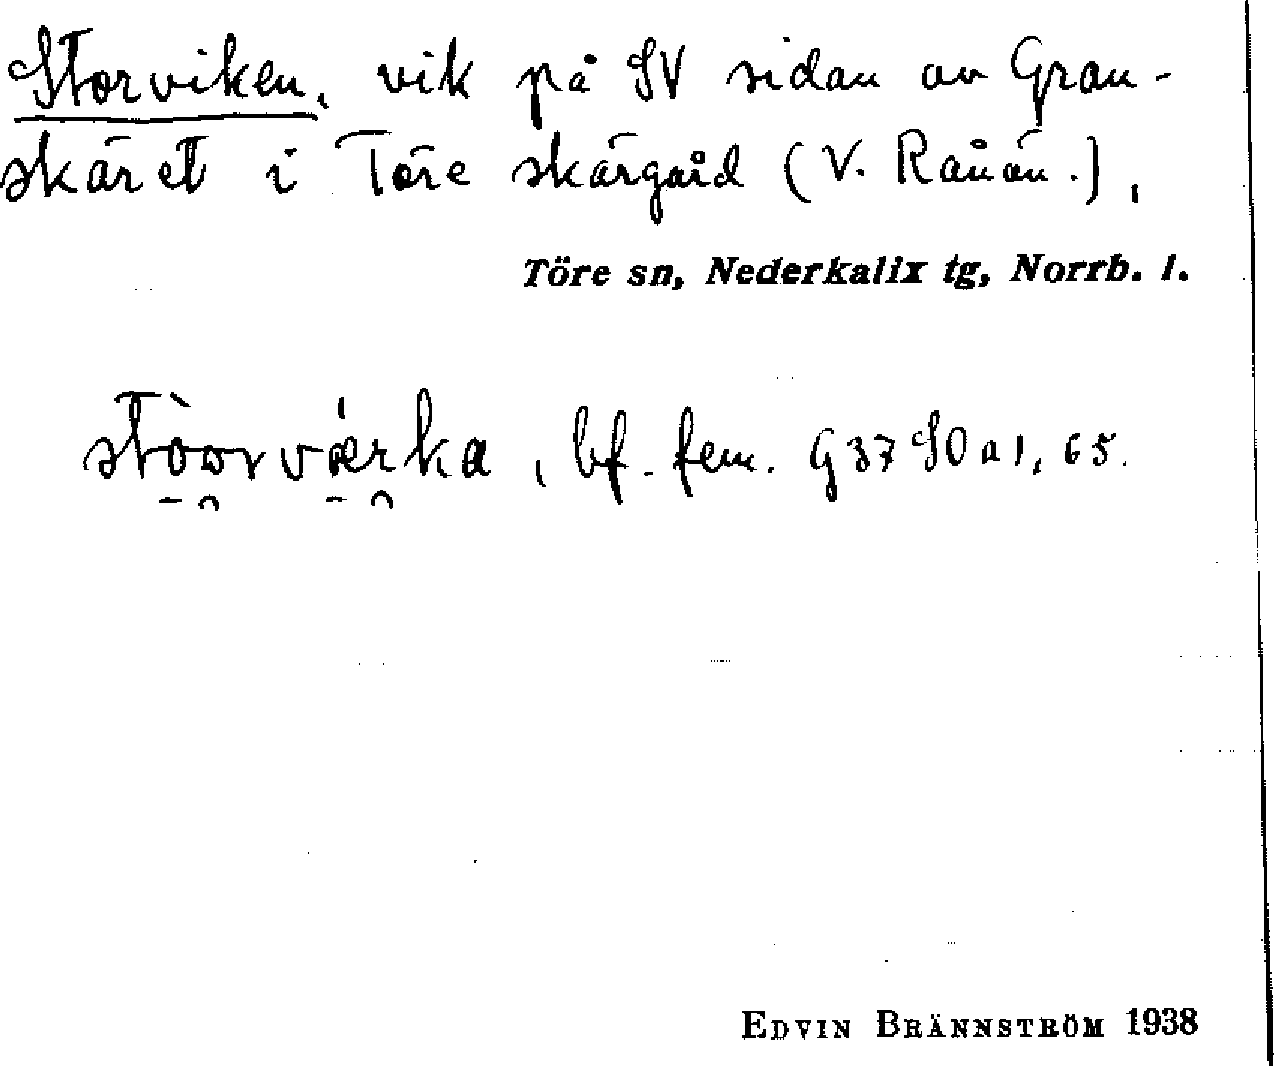 Storviken, vik på SV sidan av Gran-
skäret i Töre skärgård (V. Rånön.),
Töre sn, Nederkalix tg, Norrb. l.
bf. fem. G 37 SO a 1, 65.
EDVIN BRÄNNSTRÖM 1938